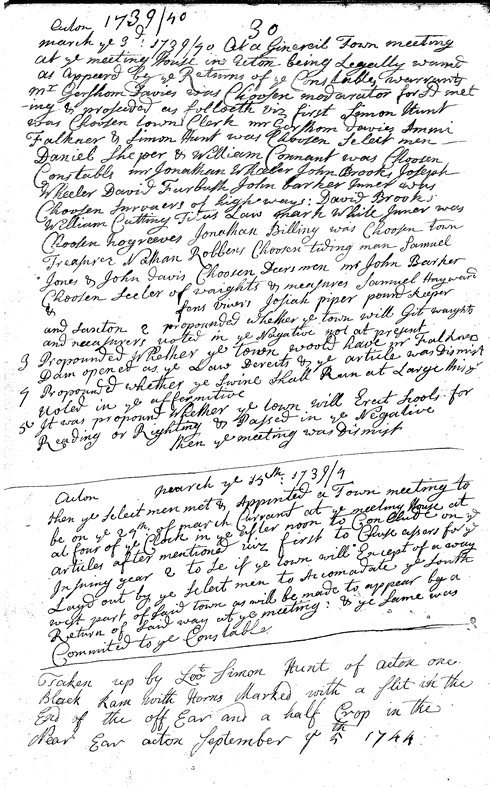 Acton 1739/40
30
march ye 3d: 1739/40 At a Generil Town meeting
at ye meeting House in Acton being Legally warnd
as Appeard by ye Returns of ye Constables warrants
mr Gershom Davies was Choosen moderator for sd met
-ing & proseded as folloeth viz first Simon Hunt
was Choosen town Clark mr Gershom Davies Ammi
Falkner & Simon Hunt was Choosen Select men
Daniel Sheper & William Connant was Choosen
Constabls mr Jonathan Wheeler John Brooks Joseph
Wheeler David Furbush John barker Juner was
Choosen Survaers of high ways: David Brooks
William Cutting Titus Law mark White Juner was
Choosen hogreeves Jonathan Billing was Choosen town
Treasurer Nathan Robbens Choosen tiding man Samuel
Jones & John davis Choosen Deersmen mr John Barker
Choosen Seeler of waights & measures Samuel Hayward
& fens vivers Josiah piper pound keeper
and 2 propounded whether ye town will Git waights
and voted in ye Negative not at present
3 Propounded Whether ye town would have mr Falkners
Dam opened as ye Law Derects & ye article was Dismist
4 Propounded whether ye Swine Shall Run at Large this yr
Voted in ye affermitive
5 It was propound whether ye town will Erect Scools for
Reading or Righting & Passed in ye Negative
then ye meeting was Dismist
Acton march ye 15th 1739/4
then ye Select men met & Appinted a Town meeting to
be on ye 29th of march Currant at ye meeting House at
at four of ye Clock in ye after noon to Conclude on ye
articles after mentioned viz first to Chuse assers for ye
Insuing year 2 to Se if ye town will Except of a way
Layd out by ye Select men to Accomadate ye South
west part of said town as will be made to appear by a
Return of Said way at ye meeting: & ye Same was
Commited to ye Constable
Taken up by Lot Simon Hunt of acton one
Black Ram with Horns Marked with a slit in the
End of the off Ear and a half Crop in the
Near Ear acton September ye 5th 1744